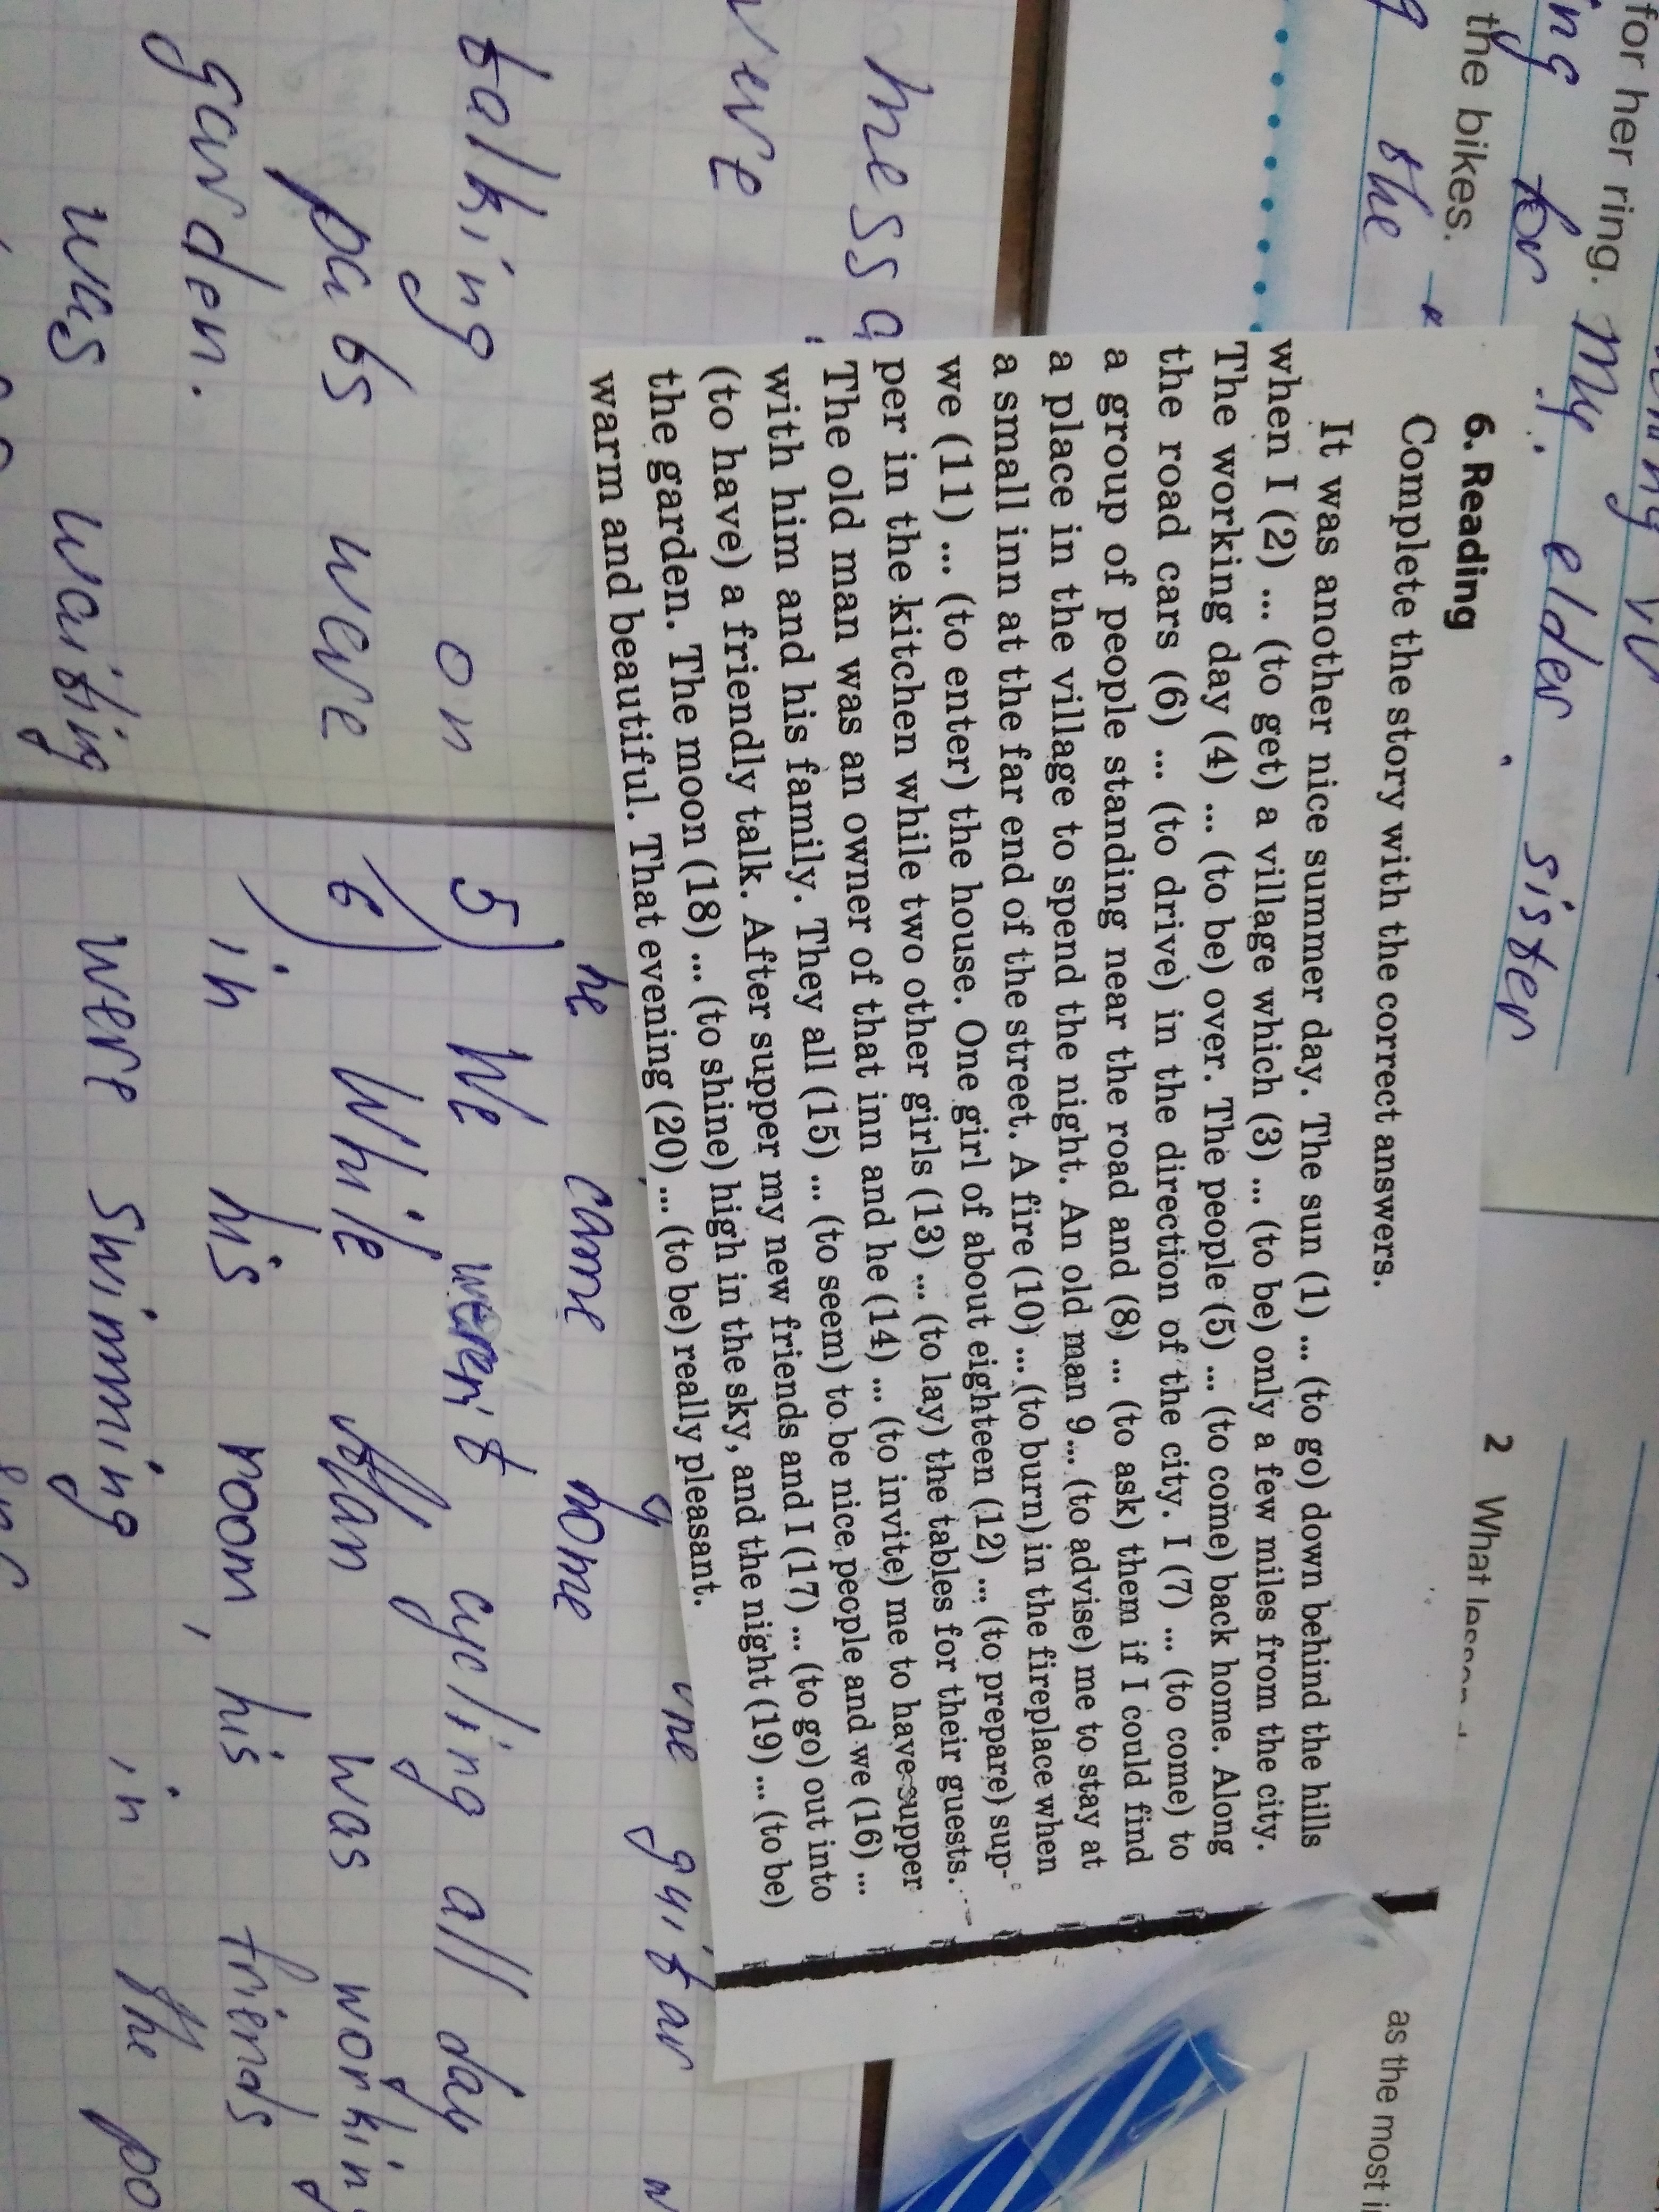 for her ring. My elder sister
ing for
the bikes.
the
2 What
as the most
6. Reading
Complete the story with the correct answers.
It was another nice summer day. The sun (1) ... (to go) down behind the hills
when I (2) ... (to get) a village which (3) ... (to be) only a few miles from the city.
The working day (4) ... (to be) over. The people (5) ... (to come) back home. Along
the road cars (6) ... (to drive) in the direction of the city. I (7) ... (to come) to
a group of people standing near the road and (8) ... (to ask) them if I could find
a place in the village to spend the night. An old man 9... (to advise) me to stay at
a small inn at the far end of the street. A fire (10) ... (to burn) in the fireplace when
we (11) ... (to enter) the house. One girl of about eighteen (12) ... (to prepare) sup-
per in the kitchen while two other girls (13) ... (to lay) the tables for their guests.
The old man was an owner of that inn and he (14) ... (to invite) me to have supper
with him and his family. They all (15) ... (to seem) to be nice people and we (16) ...
(to have) a friendly talk. After supper my new friends and I (17) ... (to go) out into
the garden. The moon (18) ... (to shine) high in the sky, and the night (19) ... (to be)
warm and beautiful. That evening (20) ... (to be) really pleasant.
talking on
were
garden.
was waiting
guitar
he came home
5) We weren't cycling all day
6) While Alan was workin
in his room, his friends
were swimming in the po